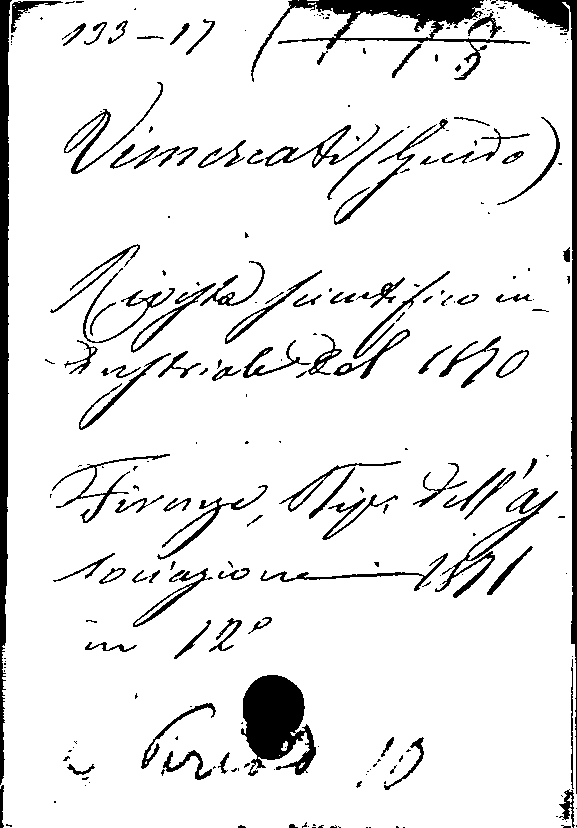 133-17
Vimercati (Guido)
Rivista scientifico in-
dustriale del 1870
Firenze, Tip. dell'as-
sociazione 1871
in 12°
10